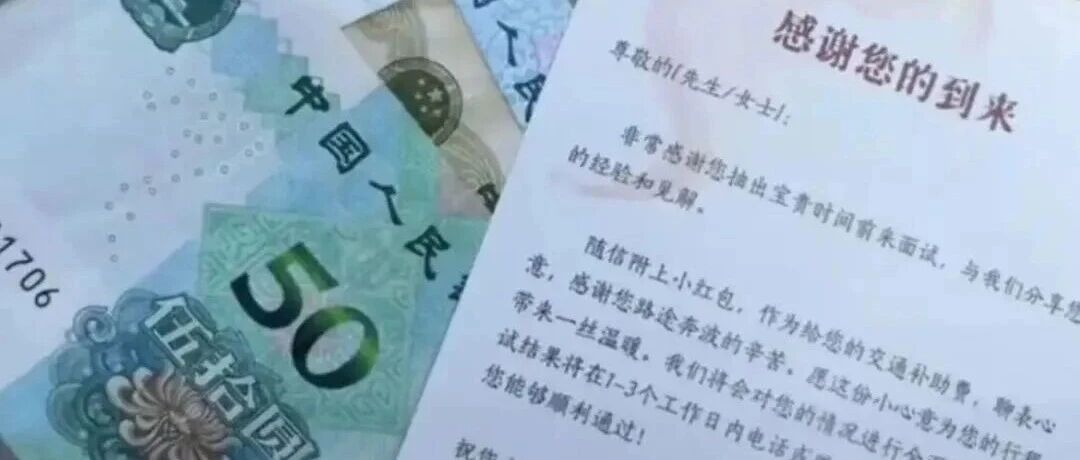 中国人民
50
伍拾圆
1706
中
人民
感谢您的到来
尊敬的[先生/女士]:
非常感谢您抽出宝贵时间前来面试,与我们分享您
的经验和见解。
随信附上小红包,作为给您的交通补助费,聊表心
意,感谢您路途奔波的辛苦。愿这份小心意为您的行程
带来一丝温暖。我们将会对您的情况进行全
试结果将在1-3个工作日内电话
您能够顺利通过!
祝您